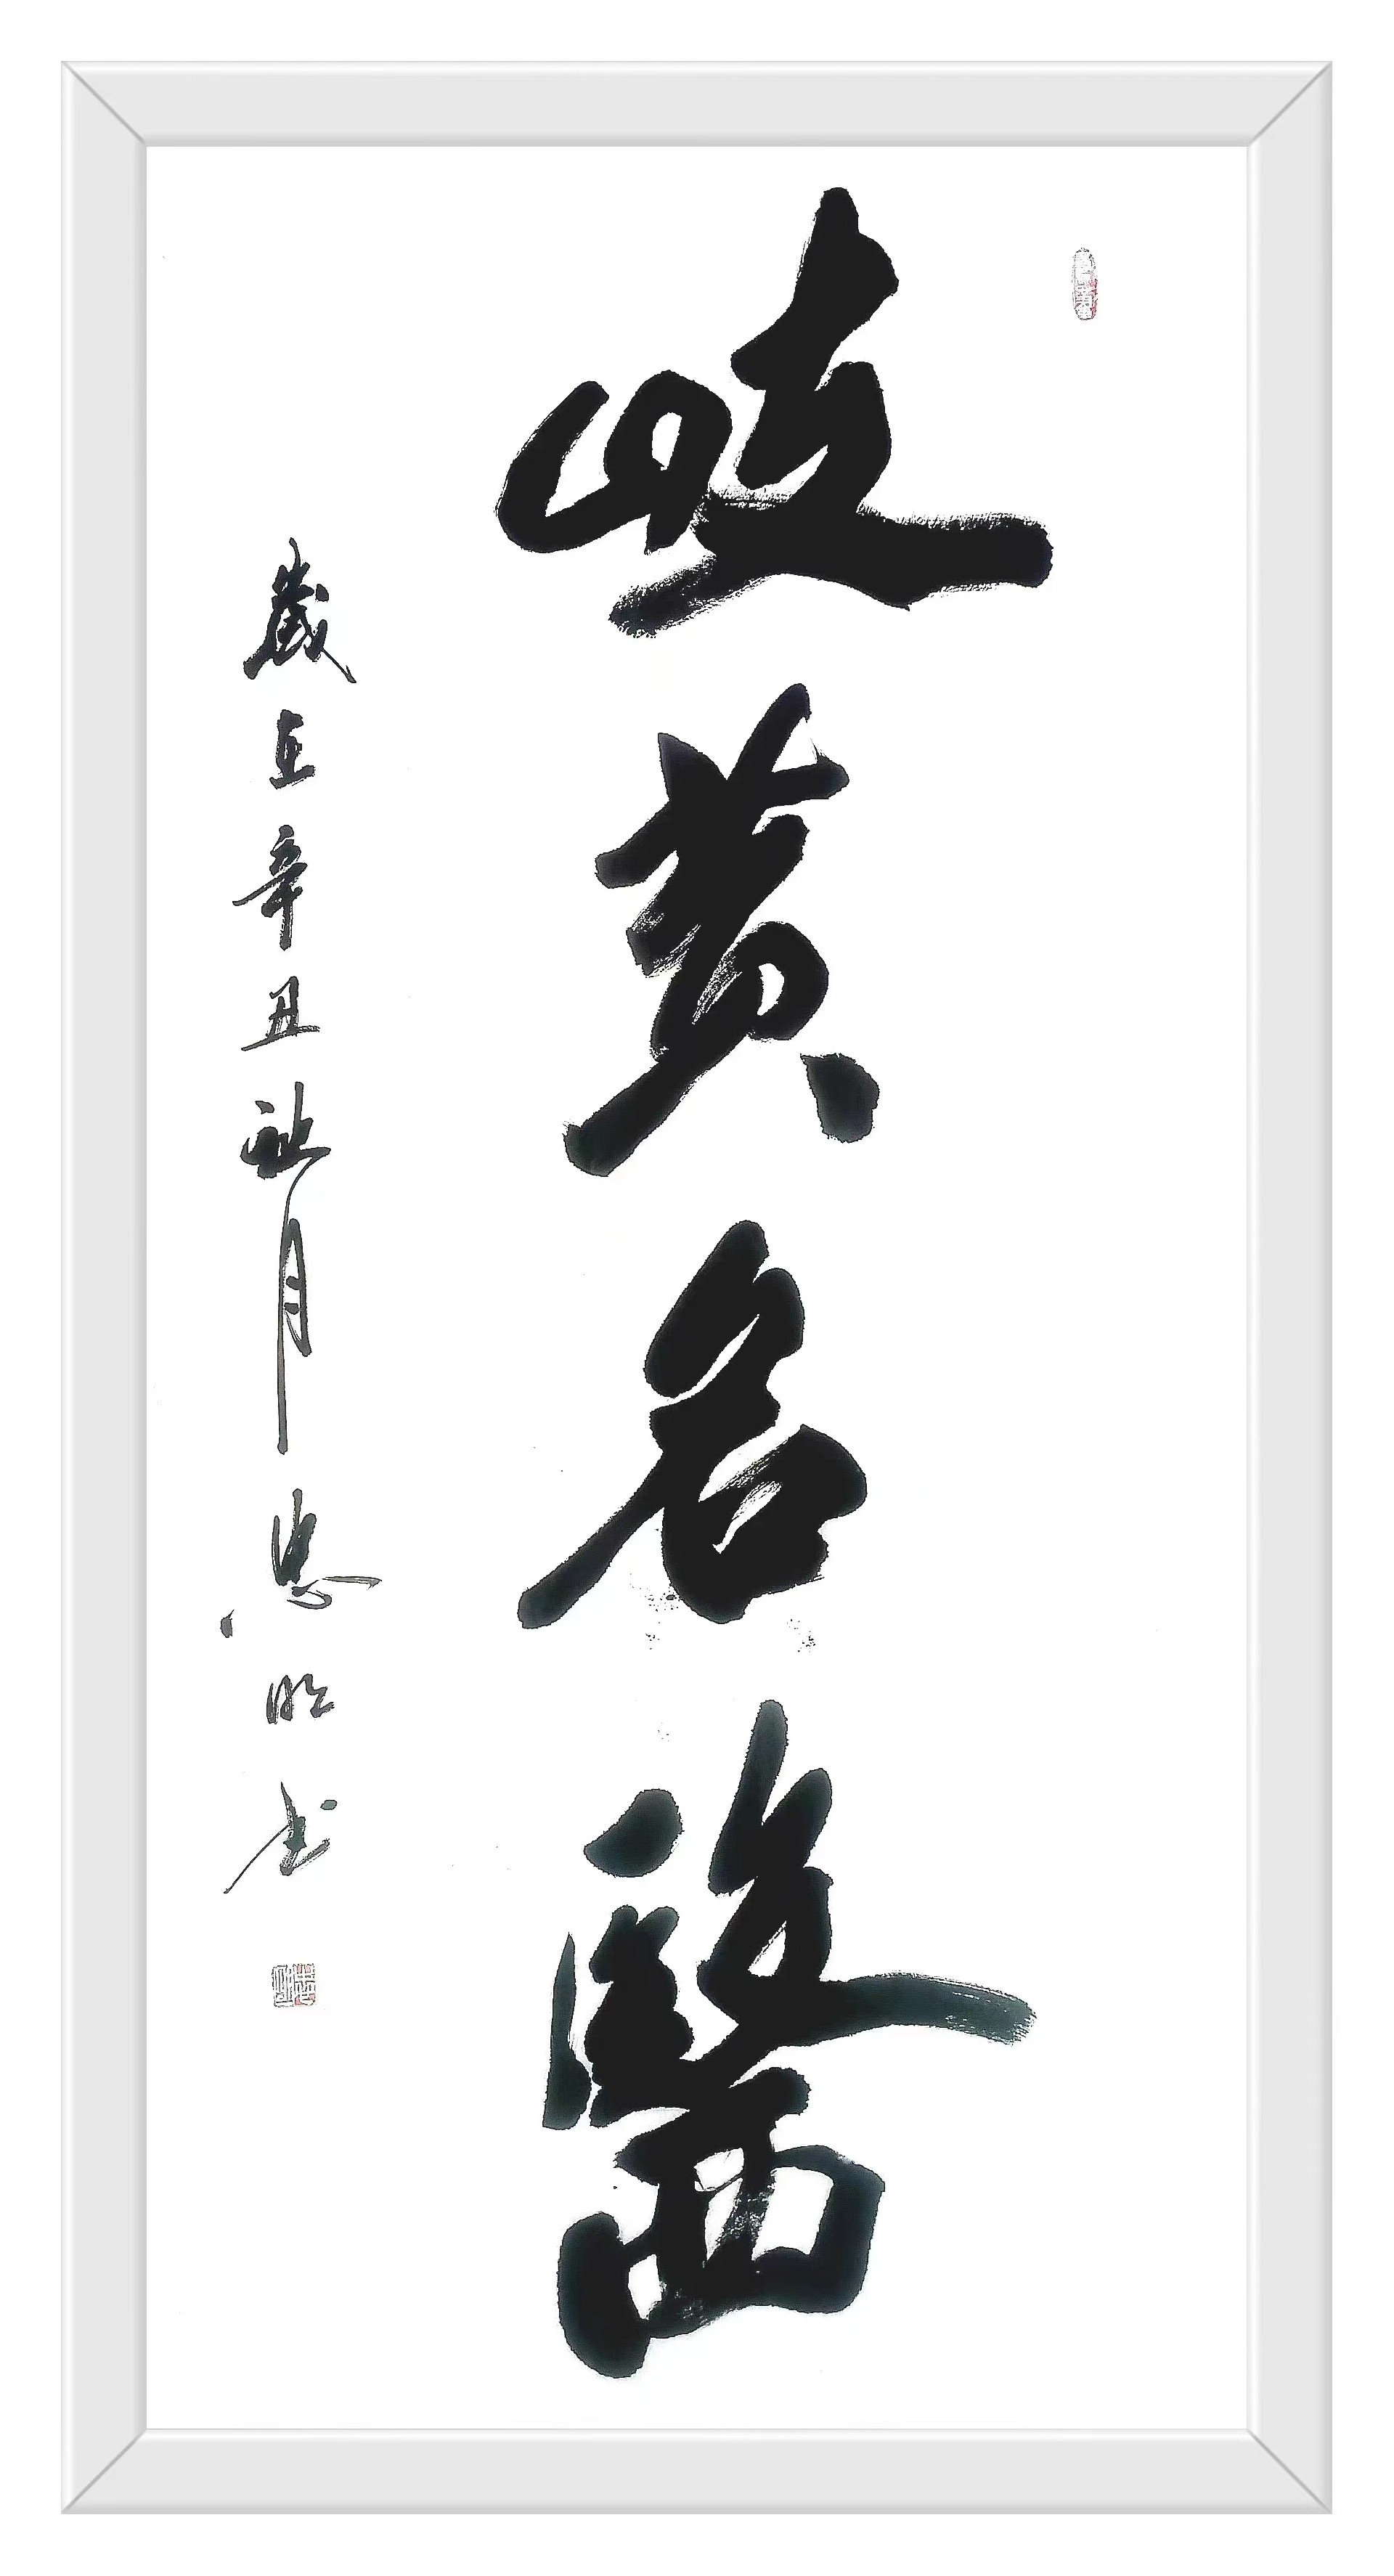 岐黄名醫
歲在辛丑秋月忠明书